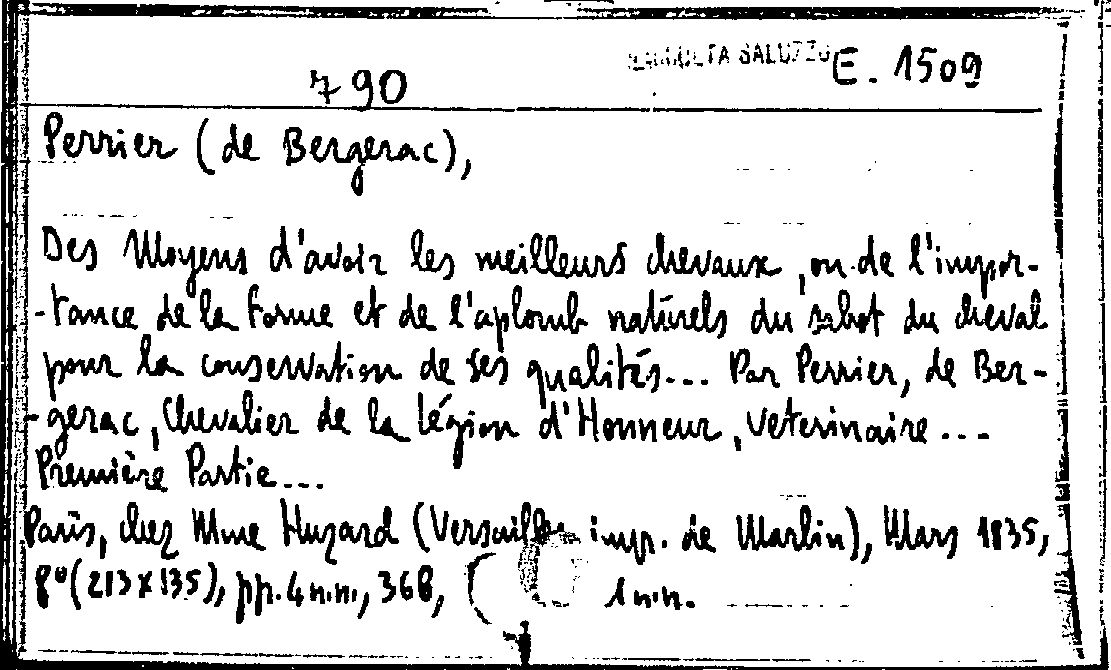 RACCOLTA SALUZZO E. 1509
790
Perrier (de Bergerac),
Des Moyens d'avoir les meilleurs chevaux, ou de l'impor-
-tance de la forme et de l'aplomb naturels du sabot du cheval
pour la conservation de ses qualités... Par Perrier, de Ber-
-gerac, Chevalier de la légion d'Honneur, Veterinaire...
Première Partie...
Paris, chez Mme Huzard (Versailles imp. de Marlin), Mars 1835,
8° (213x135), pp. 4 n.n., 368, 1 n.n.